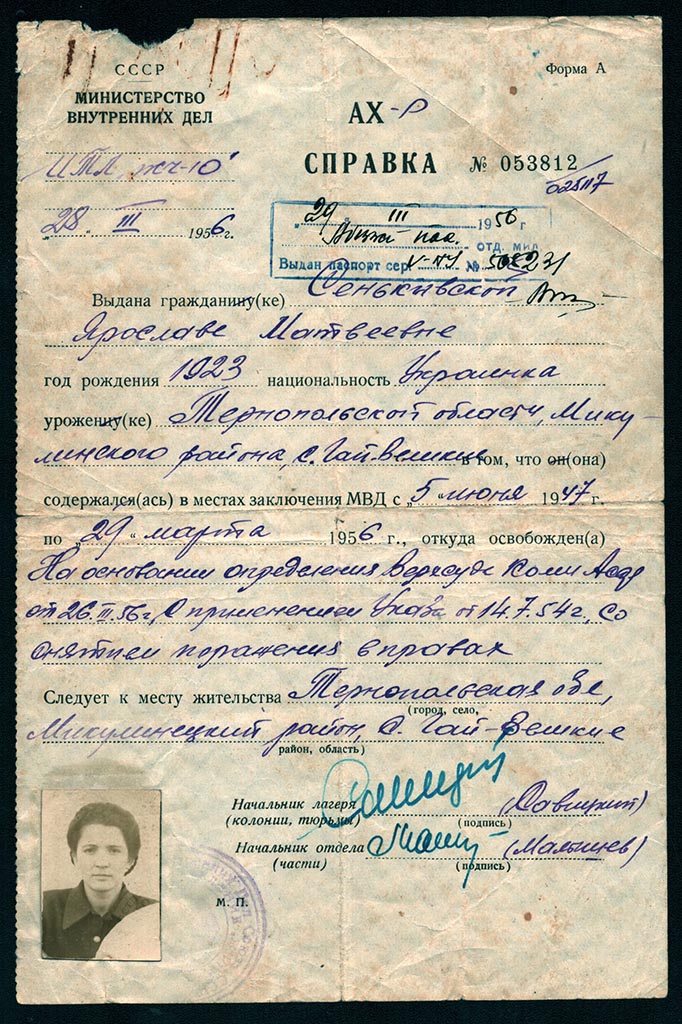 СССР
Форма А
МИНИСТЕРСТВО
ВНУТРЕННИХ ДЕЛ
АХ-Р
ИТЛ "ЖЧ-10"
СПРАВКА № 053812
025117
"28" III 1956г.
"29" III 1956 г
отд. мил
Выдан паспорт сер. №
Выдана гражданину(ке) Сенькивской
Ярославе Матвеевне
год рождения 1923 национальность Украинка
уроженцу(ке) Тернопольской области, Мику-
линского района, с. Гай-Великие в том, что он(она)
содержался(ась) в местах заключения МВД с „5" июня 1947 г.
по „29" марта 1956 г., откуда освобожден(а)
На основании определения Верхсуда Коми АССР
от 26.II.56г, с применением Указа от 14.7.54г. со
снятием поражения в правах
Следует к месту жительства Тернопольская обл,
(город, село,
Микулинецкий район, с. Гай-Велике
район, область)
Начальник лагеря (Савицкий)
(колонии, тюрьмы) (подпись)
Начальник отдела (Малышев)
(части) (подпись)
М. П.